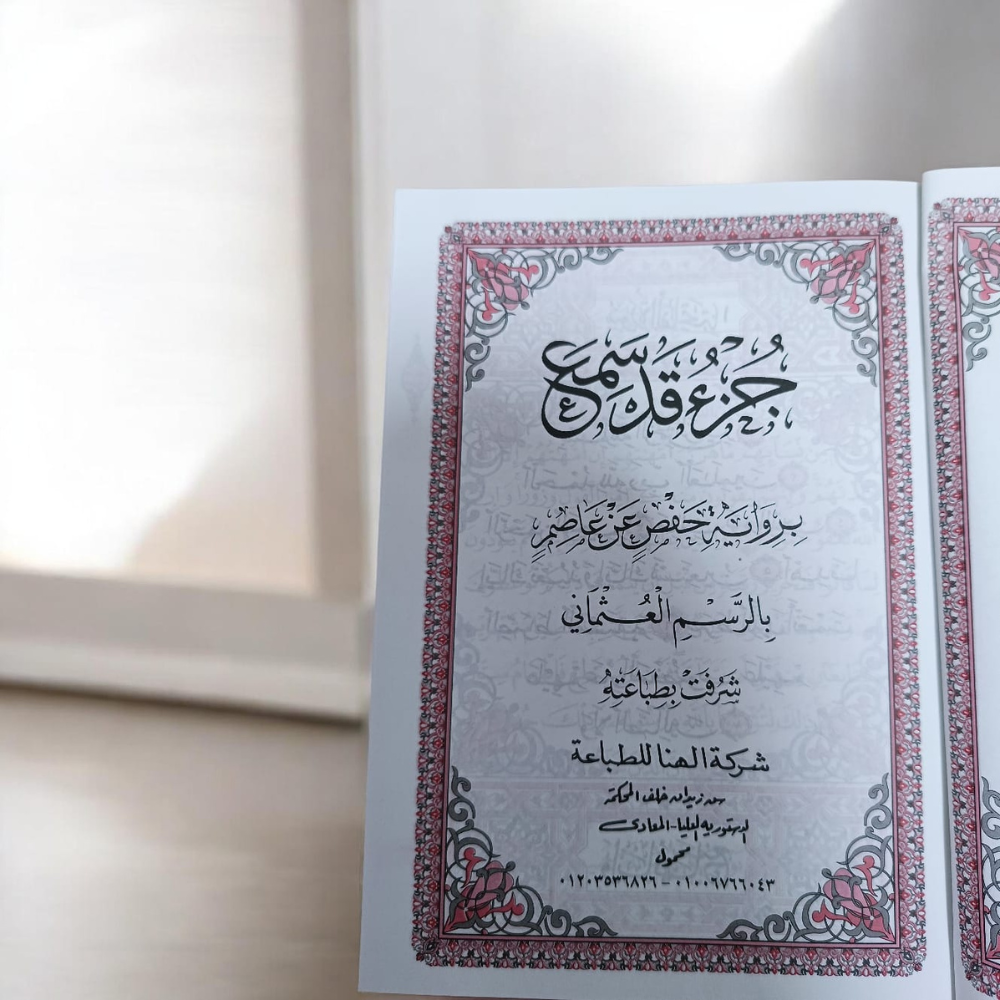 جُزْءُ قَدْ سَمِعَ
بِرِوَايَةِ حَفْصٍ عَنْ عَاصِمٍ
بِالرَّسْمِ الْعُثْمَانِي
شَرُفَتْ بِطِبَاعَتِهُ
شركة الهنا للطباعة
ش زيدان خلف المحكمة
الدستوريه العليا - المعادى
محمول
٠١٢٠٣٥٣٦٨٢٦ - ٠١٠٠٦٧٦٦٠٤٣